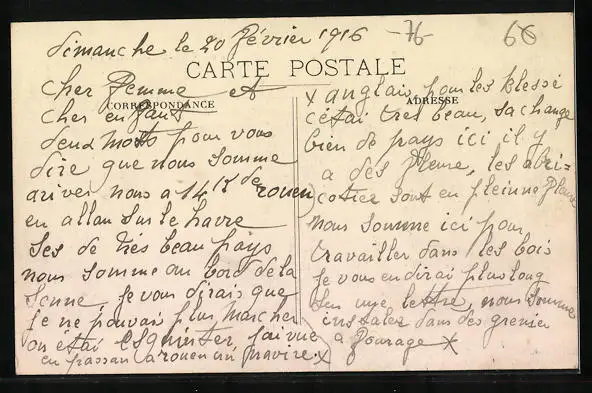 dimanche le 20 février 1916 -76- 60
CARTE POSTALE
CORRESPONDANCE
ADRESSE
cher femme et
cher enfant
deux mots pour vous
dire que nous somme
ariver nous a 14 K de rouen
en allan sur le havre
ses de trés beau pays
nous somme au bord de la
senne, je vous dirais que
je ne pouvais plus marcher
on etai esquinter, jai vue
en passan a rouen un navire x
x anglais pour les blessé
cétai tres beau, sa change
bien de pays ici il y
a des fleure, les abri=
cotier sont en pleinne fleure
nous somme ici pour
travailler dans les bois
je vous en dirai plus long
sur une lettre, nous somme
instaler dans des grenier
a fourage x